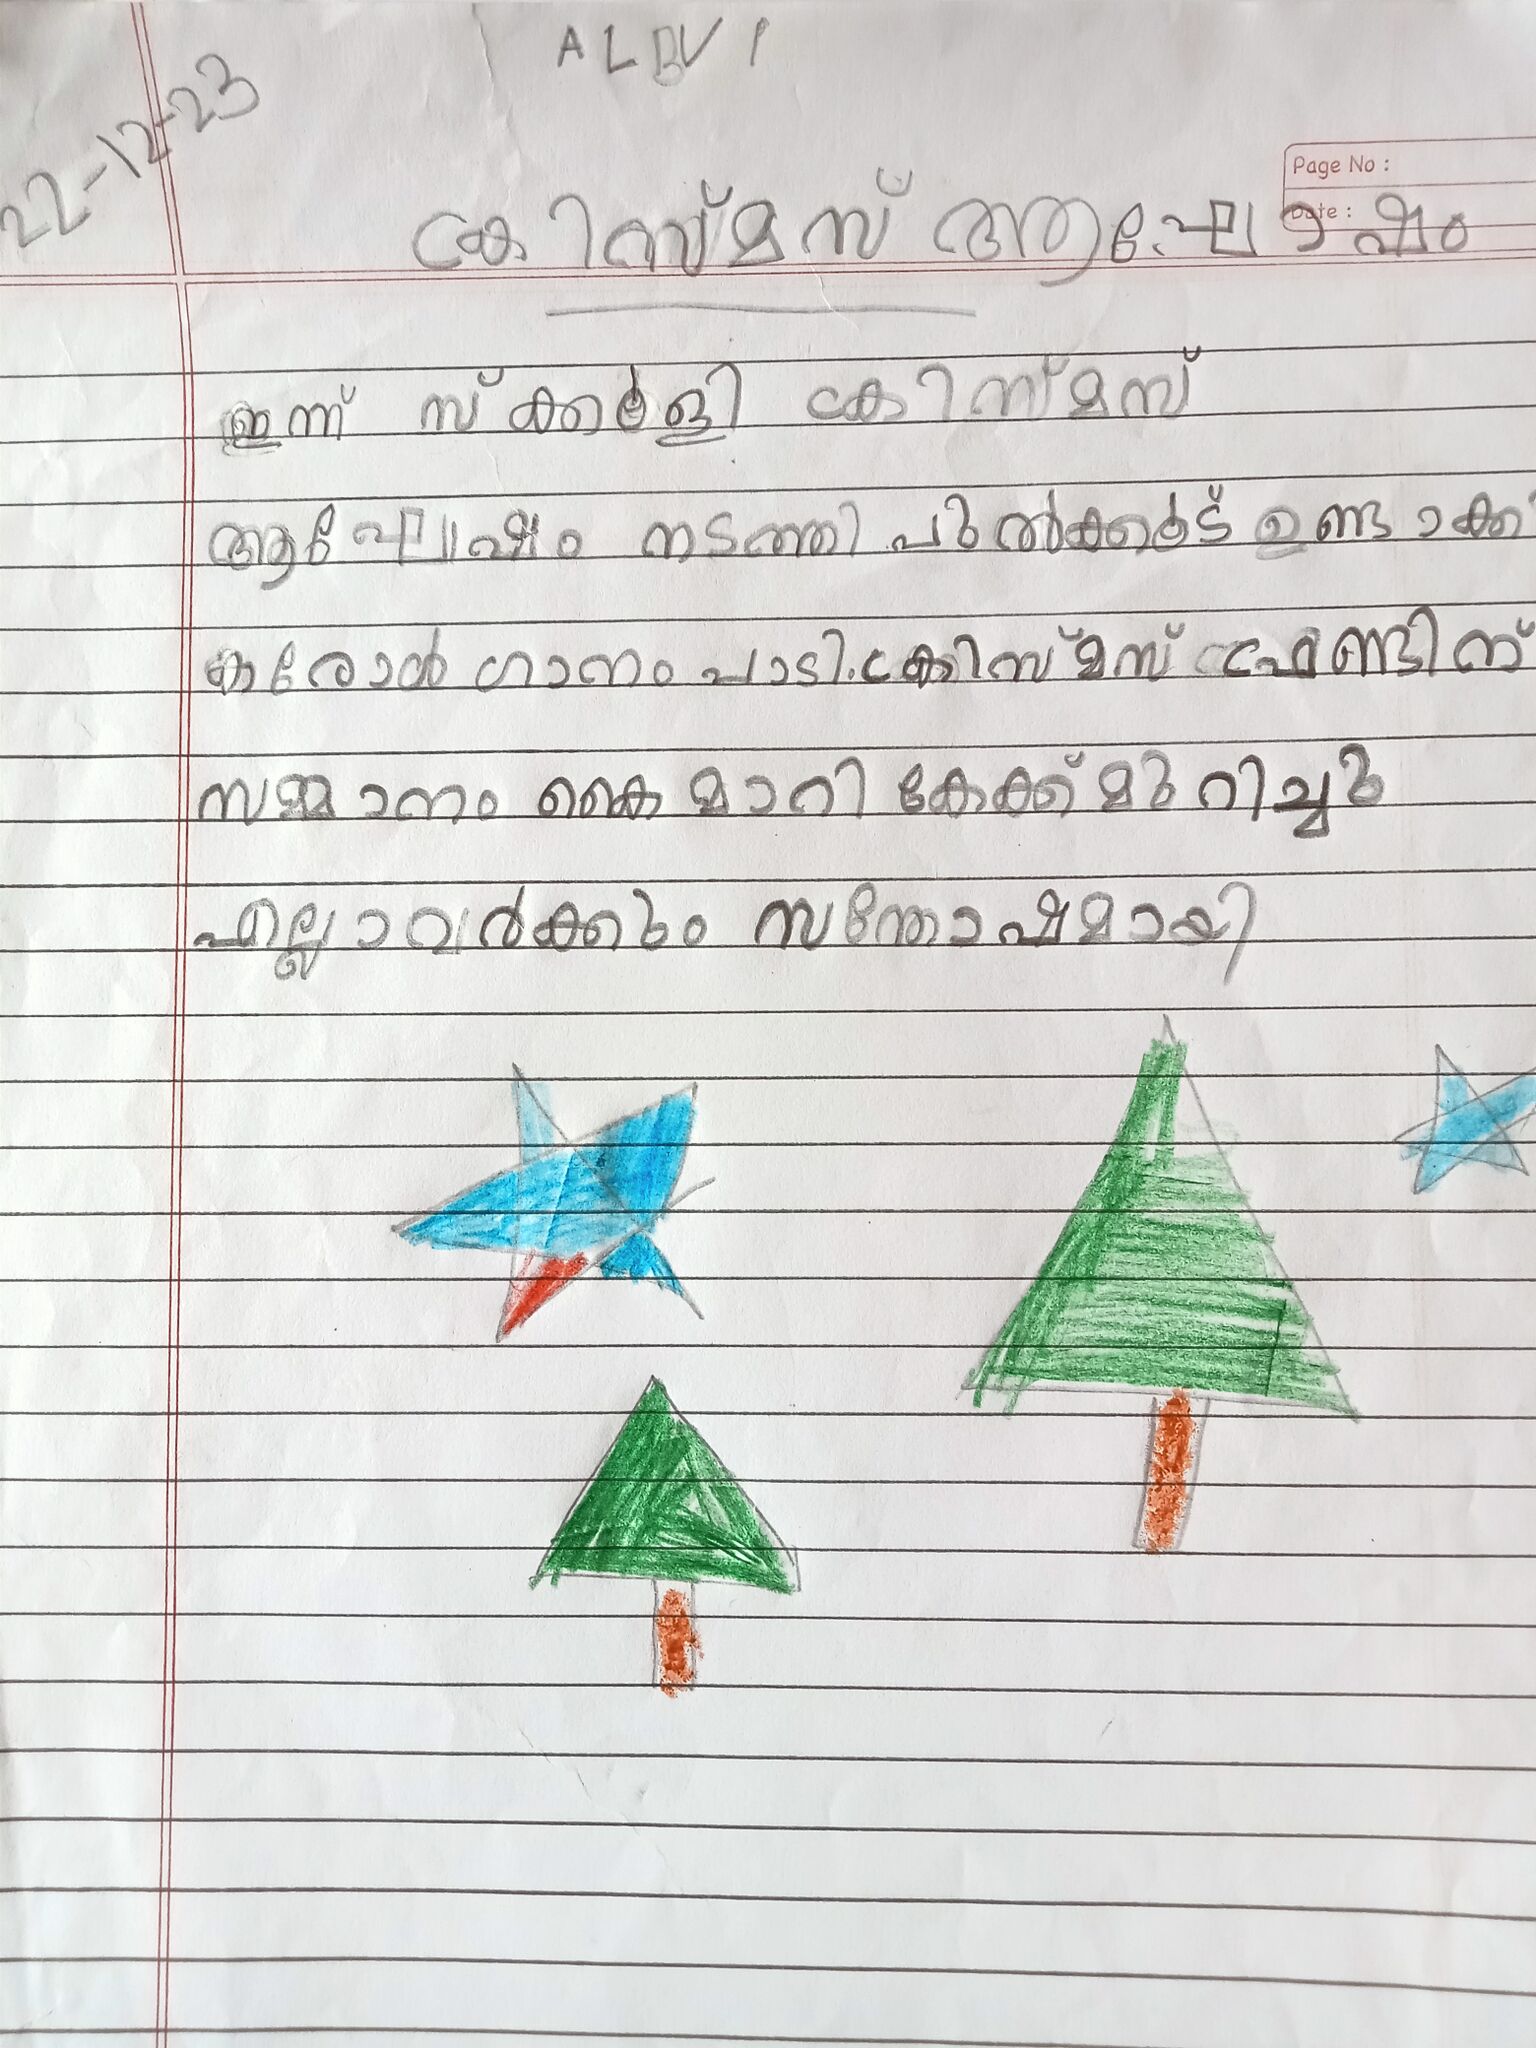 ALBVI
22-12-23
Page No :
Date :
ക്രിസ്മസ് ആഘോഷം
ഇന്ന് സ്ക്കൂളി ക്രിസ്മസ്
ആഘോഷം നടത്തി പുൽക്കൂട് ഉണ്ടാക്കി
കരോൾ ഗാനം പാടി. ക്രിസ്മസ് ഫ്രണ്ടിന്
സമ്മാനം കൈമാറി കേക്ക് മുറിച്ചു
എല്ലാവർക്കും സന്തോഷമായി